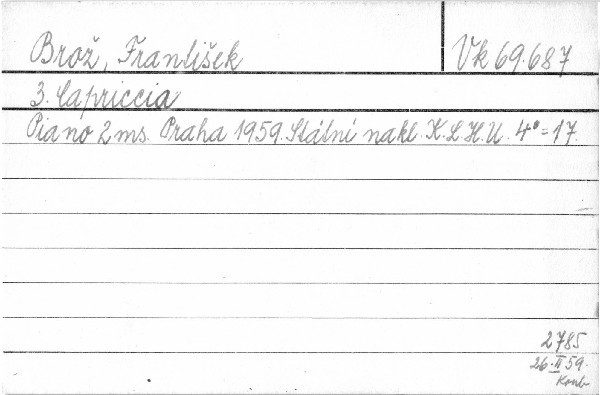 Brož, František Vk 69.687
3. Capriccia
Piano 2 ms. Praha 1959. Státní nakl. K.L.H.U. 4° = 17.
2785
26.II 59.